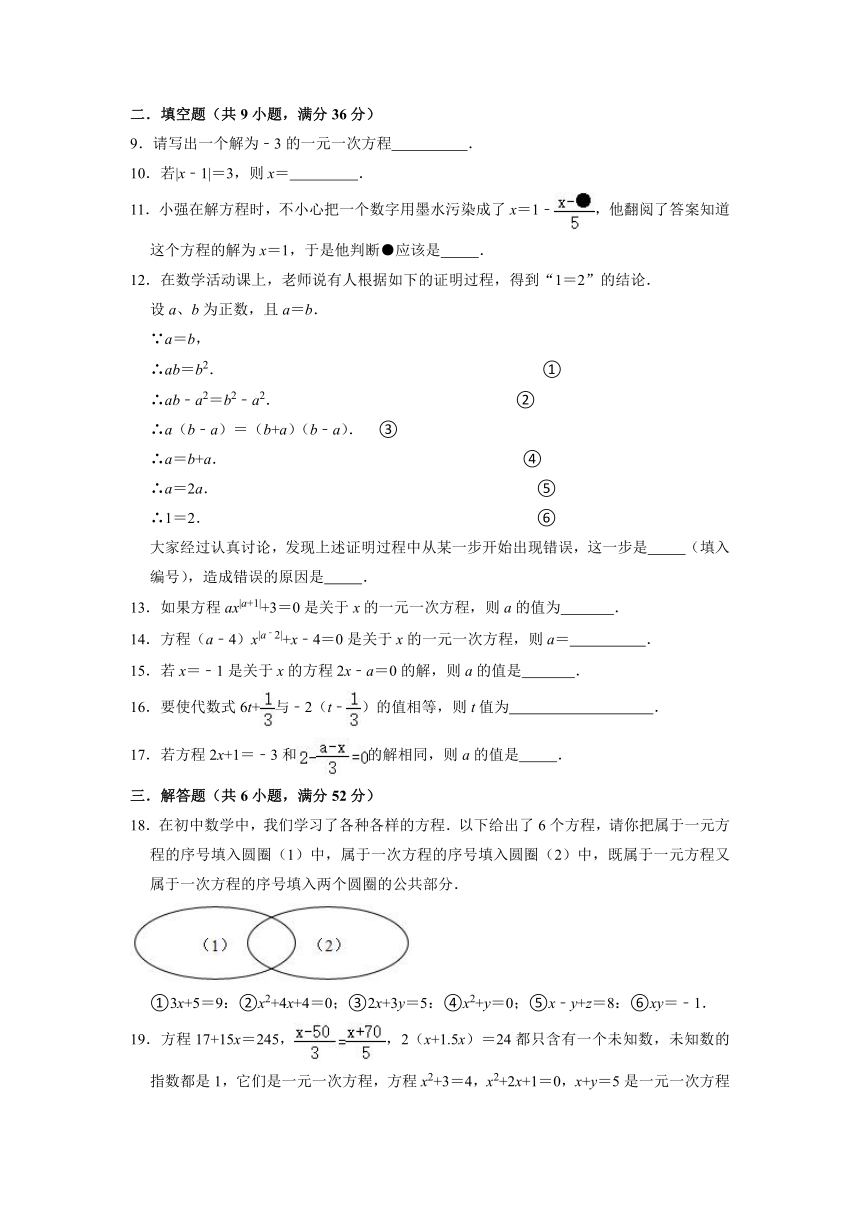 二．填空题（共 9 小题，满分 36 分）
9．请写出一个解为﹣3 的一元一次方程 ．
10．若|x﹣1|＝3，则 x＝ ．
11．小强在解方程时，不小心把一个数字用墨水污染成了 x＝1﹣(x-●)/5，他翻阅了答案知道
这个方程的解为 x＝1，于是他判断●应该是 ．
12．在数学活动课上，老师说有人根据如下的证明过程，得到“1＝2”的结论．
设 a、b 为正数，且 a＝b．
∵a＝b，
∴ab＝b²． ①
∴ab﹣a²＝b²﹣a²． ②
∴a（b﹣a）＝（b+a）（b﹣a）． ③
∴a＝b+a． ④
∴a＝2a． ⑤
∴1＝2． ⑥
大家经过认真讨论，发现上述证明过程中从某一步开始出现错误，这一步是 （填入
编号），造成错误的原因是 ．
13．如果方程 ax^|a+1|+3＝0 是关于 x 的一元一次方程，则 a 的值为 ．
14．方程（a﹣4）x^|a﹣2|+x﹣4＝0 是关于 x 的一元一次方程，则 a＝ ．
15．若 x＝﹣1 是关于 x 的方程 2x﹣a＝0 的解，则 a 的值是 ．
16．要使代数式 6t+1/3与﹣2（t﹣1/3）的值相等，则 t 值为 ．
17．若方程 2x+1＝﹣3 和2-(a-x)/3=0的解相同，则 a 的值是 ．
三．解答题（共 6 小题，满分 52 分）
18．在初中数学中，我们学习了各种各样的方程．以下给出了 6 个方程，请你把属于一元方
程的序号填入圆圈（1）中，属于一次方程的序号填入圆圈（2）中，既属于一元方程又
属于一次方程的序号填入两个圆圈的公共部分．
（1） （2）
①3x+5＝9：②x²+4x+4＝0；③2x+3y＝5：④x²+y＝0；⑤x﹣y+z＝8：⑥xy＝﹣1．
19．方程 17+15x＝245，(x-50)/3=(x+70)/5，2（x+1.5x）＝24 都只含有一个未知数，未知数的
指数都是 1，它们是一元一次方程，方程 x²+3＝4，x²+2x+1＝0，x+y＝5 是一元一次方程